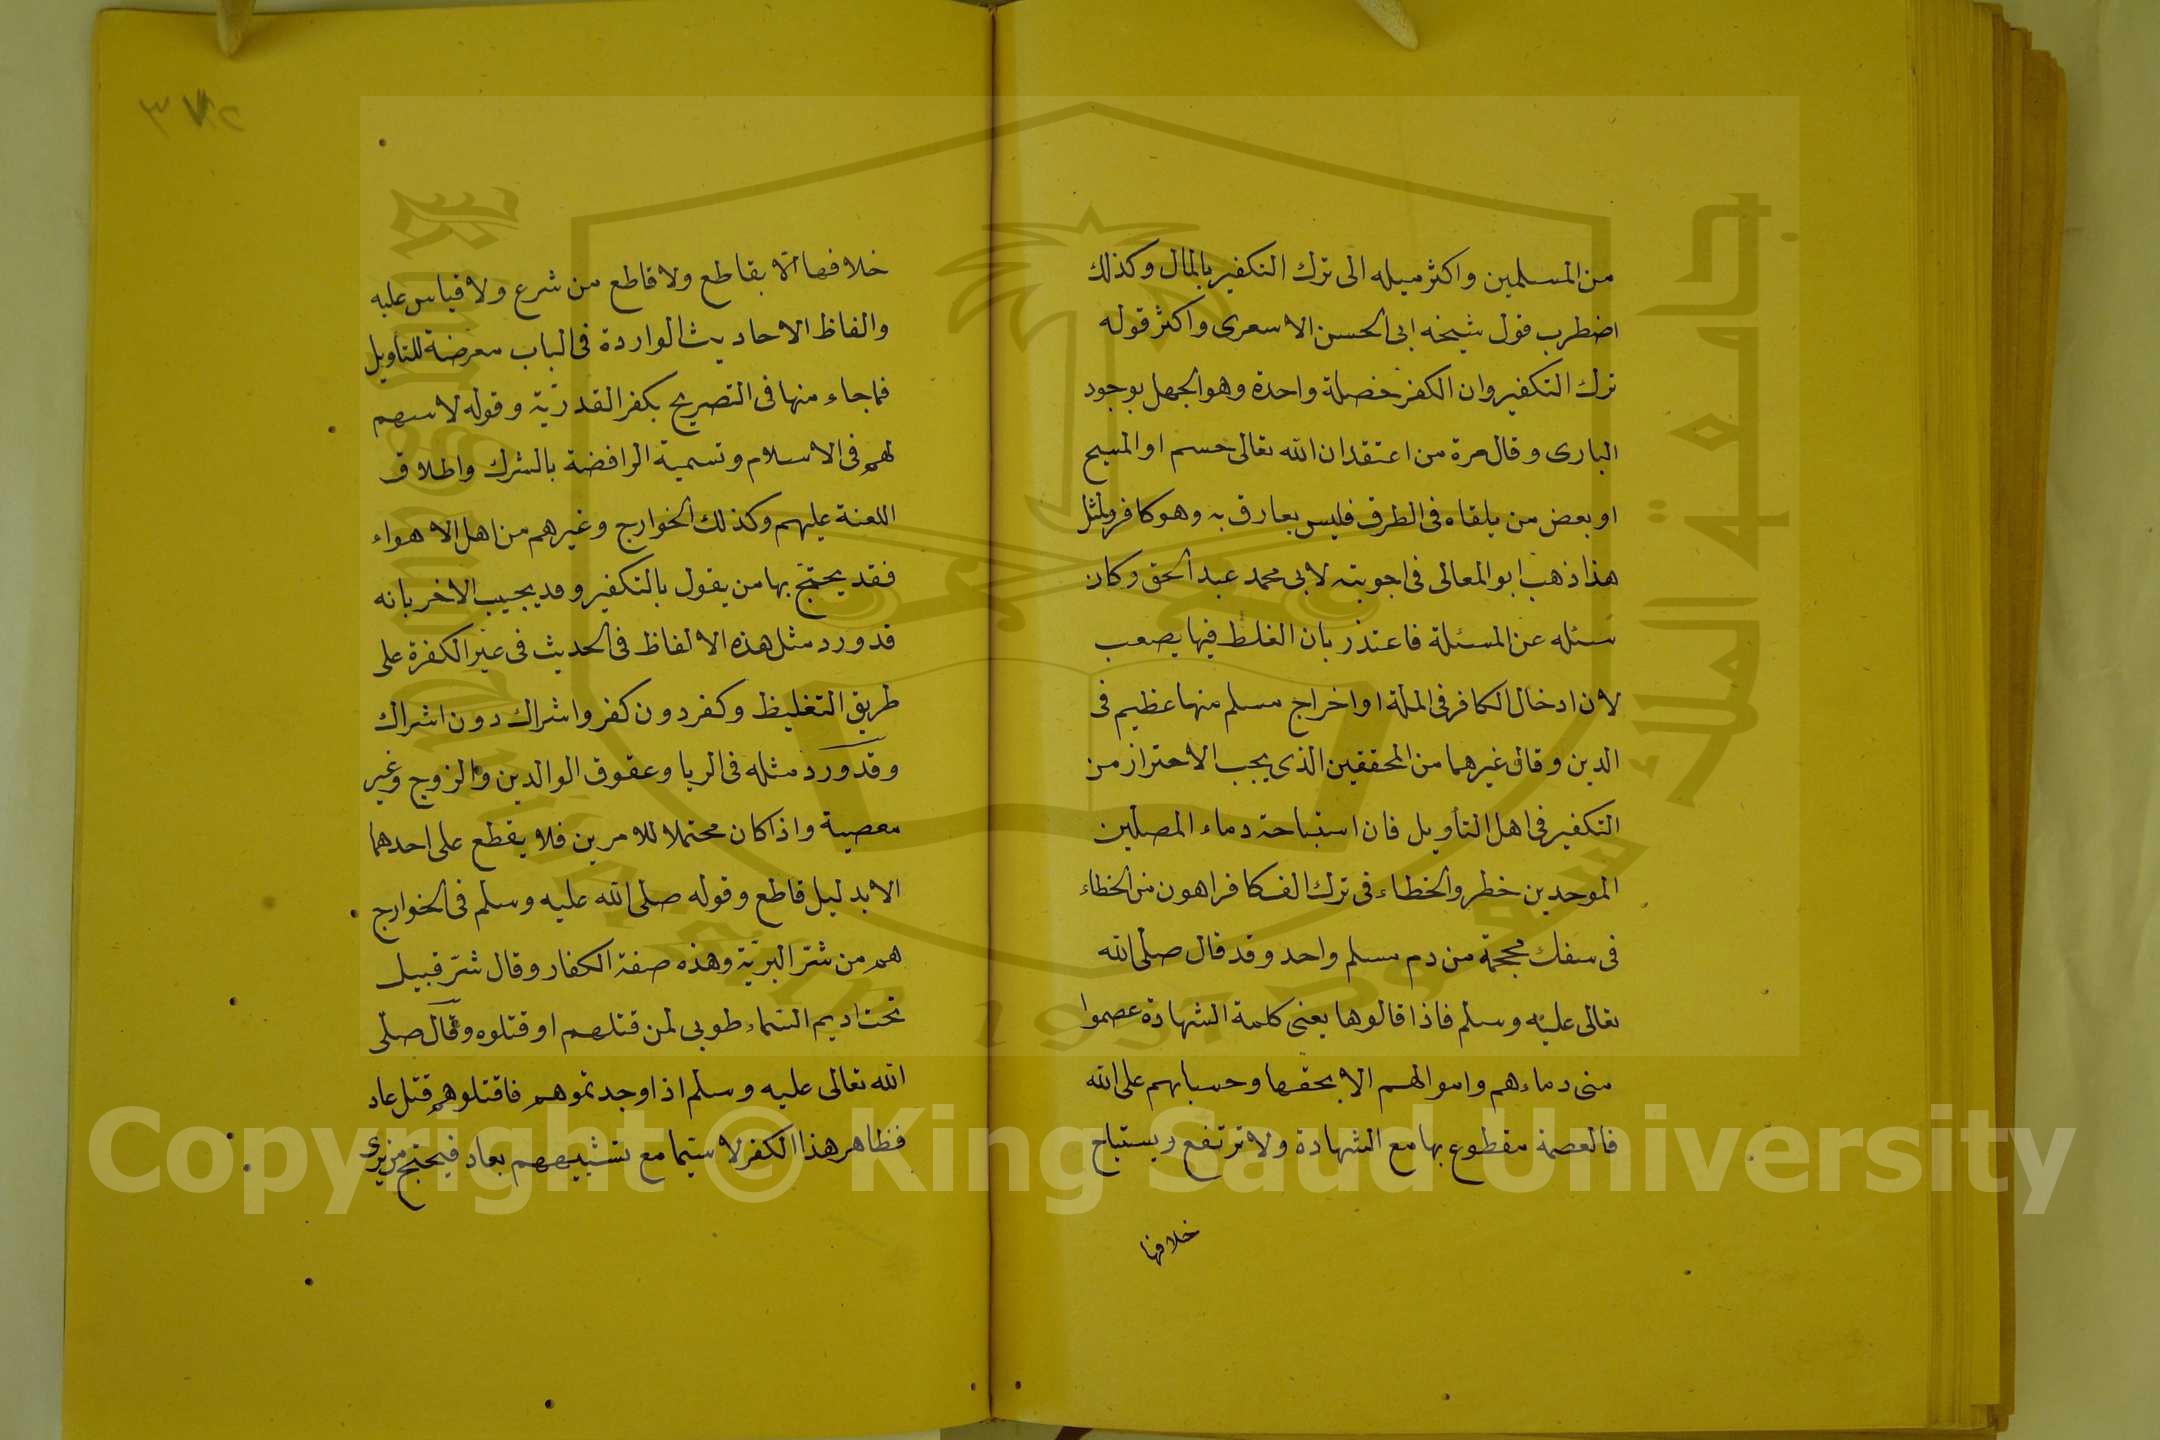 من المسلمين واكثر ميله الى ترك التكفير بالمال وكذلك
اضطرب قول شيخه ابى الحسن الاسعرى واكثر قوله
ترك التكفير وان الكفر خصلة واحدة وهو الجهل بوجود
البارى وقال مرة من اعتقد ان الله تعالى جسم او المسيح
او بعض من يلقاه فى الطرق فليس بعارف به وهو كافر ولمثل
هذا ذهب ابو المعالى فى اجوبته لابى محمد عبد الحق وكان
سئله عن المسئلة فاعتذر بان الغلط فيها يصعب
لان ادخال الكافر فى الملة او اخراج مسلم منها عظيم فى
الدين وقال غيرهما من المحققين الذى يجب الاحتراز من
التكفير فى اهل التأويل فان استباحة دماء المصلين
الموحدين خطر والخطاء فى ترك الف كافر اهون من الخطاء
فى سفك محجمة من دم مسلم واحد وقد قال صلى الله
تعالى عليه وسلم فاذا قالوها يعنى كلمة الشهادة عصموا
منى دماءهم واموالهم الا بحقها وحسابهم على الله
فالعصمة مقطوع بها مع الشهادة ولا ترتفع ويستباح
خلافها
خلافها الا بقاطع ولا قاطع من شرع ولا قياس عليه
والفاظ الاحاديث الواردة فى الباب معرضة للتاويل
فما جاء منها فى التصريح بكفر القدرية وقوله لا سهم
لهم فى الاسلام وتسمية الرافضة بالشرك واطلاق
اللعنة عليهم وكذلك الخوارج وغيرهم من اهل الاهواء
فقد يحتج بها من يقول بالتكفير وقد يجيب الاخر بانه
قد ورد مثل هذه الالفاظ فى الحديث فى غير الكفرة على
طريق التغليظ وكفر دون كفر واشراك دون اشراك
وقد ورد مثله فى الربا وعقوق الوالدين والزوج وغير
معصية واذا كان محتملا للامرين فلا يقطع على احدهما
الا بدليل قاطع وقوله صلى الله عليه وسلم فى الخوارج
هم من شر البرية وهذه صفة الكفار وقال شر قبيل
تحت اديم السماء طوبى لمن قتلهم او قتلوه وقال صلى
الله تعالى عليه وسلم اذا وجدتموهم فاقتلوهم قتل عاد
فظاهر هذا الكفر لا سيما مع تشبيههم بعاد فيحتج من يرى
جامعة الملك سعود
King Saud University
1957
Copyright © King Saud University